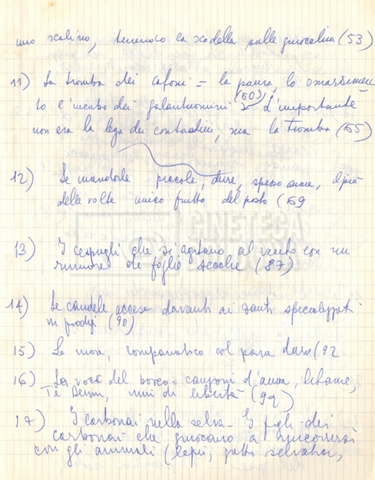 uno scalino, tenendo la scodella sulle ginocchia (53)
11) La tromba dei cafoni = la paura, lo smarrimen
to e l'incubo dei galantuomini (60) L'importante
non era la lega dei contadini, ma la tromba (65)
12) Le mandorle piccole, dure, spesso amare, il più
delle volte unico frutto del posto (69
13) I cespugli che si agitano al vento con un
rumore di foglie secche (87)
14) Le candele accese davanti ai santi specializzati
in prodigi (90)
15) Le more, companatico col pane duro (92
16) Le voci del bosco = canzoni d'amore, litanie,
Te Deum, inni di libertà (99)
17) I carbonai nella selva - I figli dei
carbonai che giocano a rincorrersi
con gli animali (lepri, gatti selvatici,
CINETECA